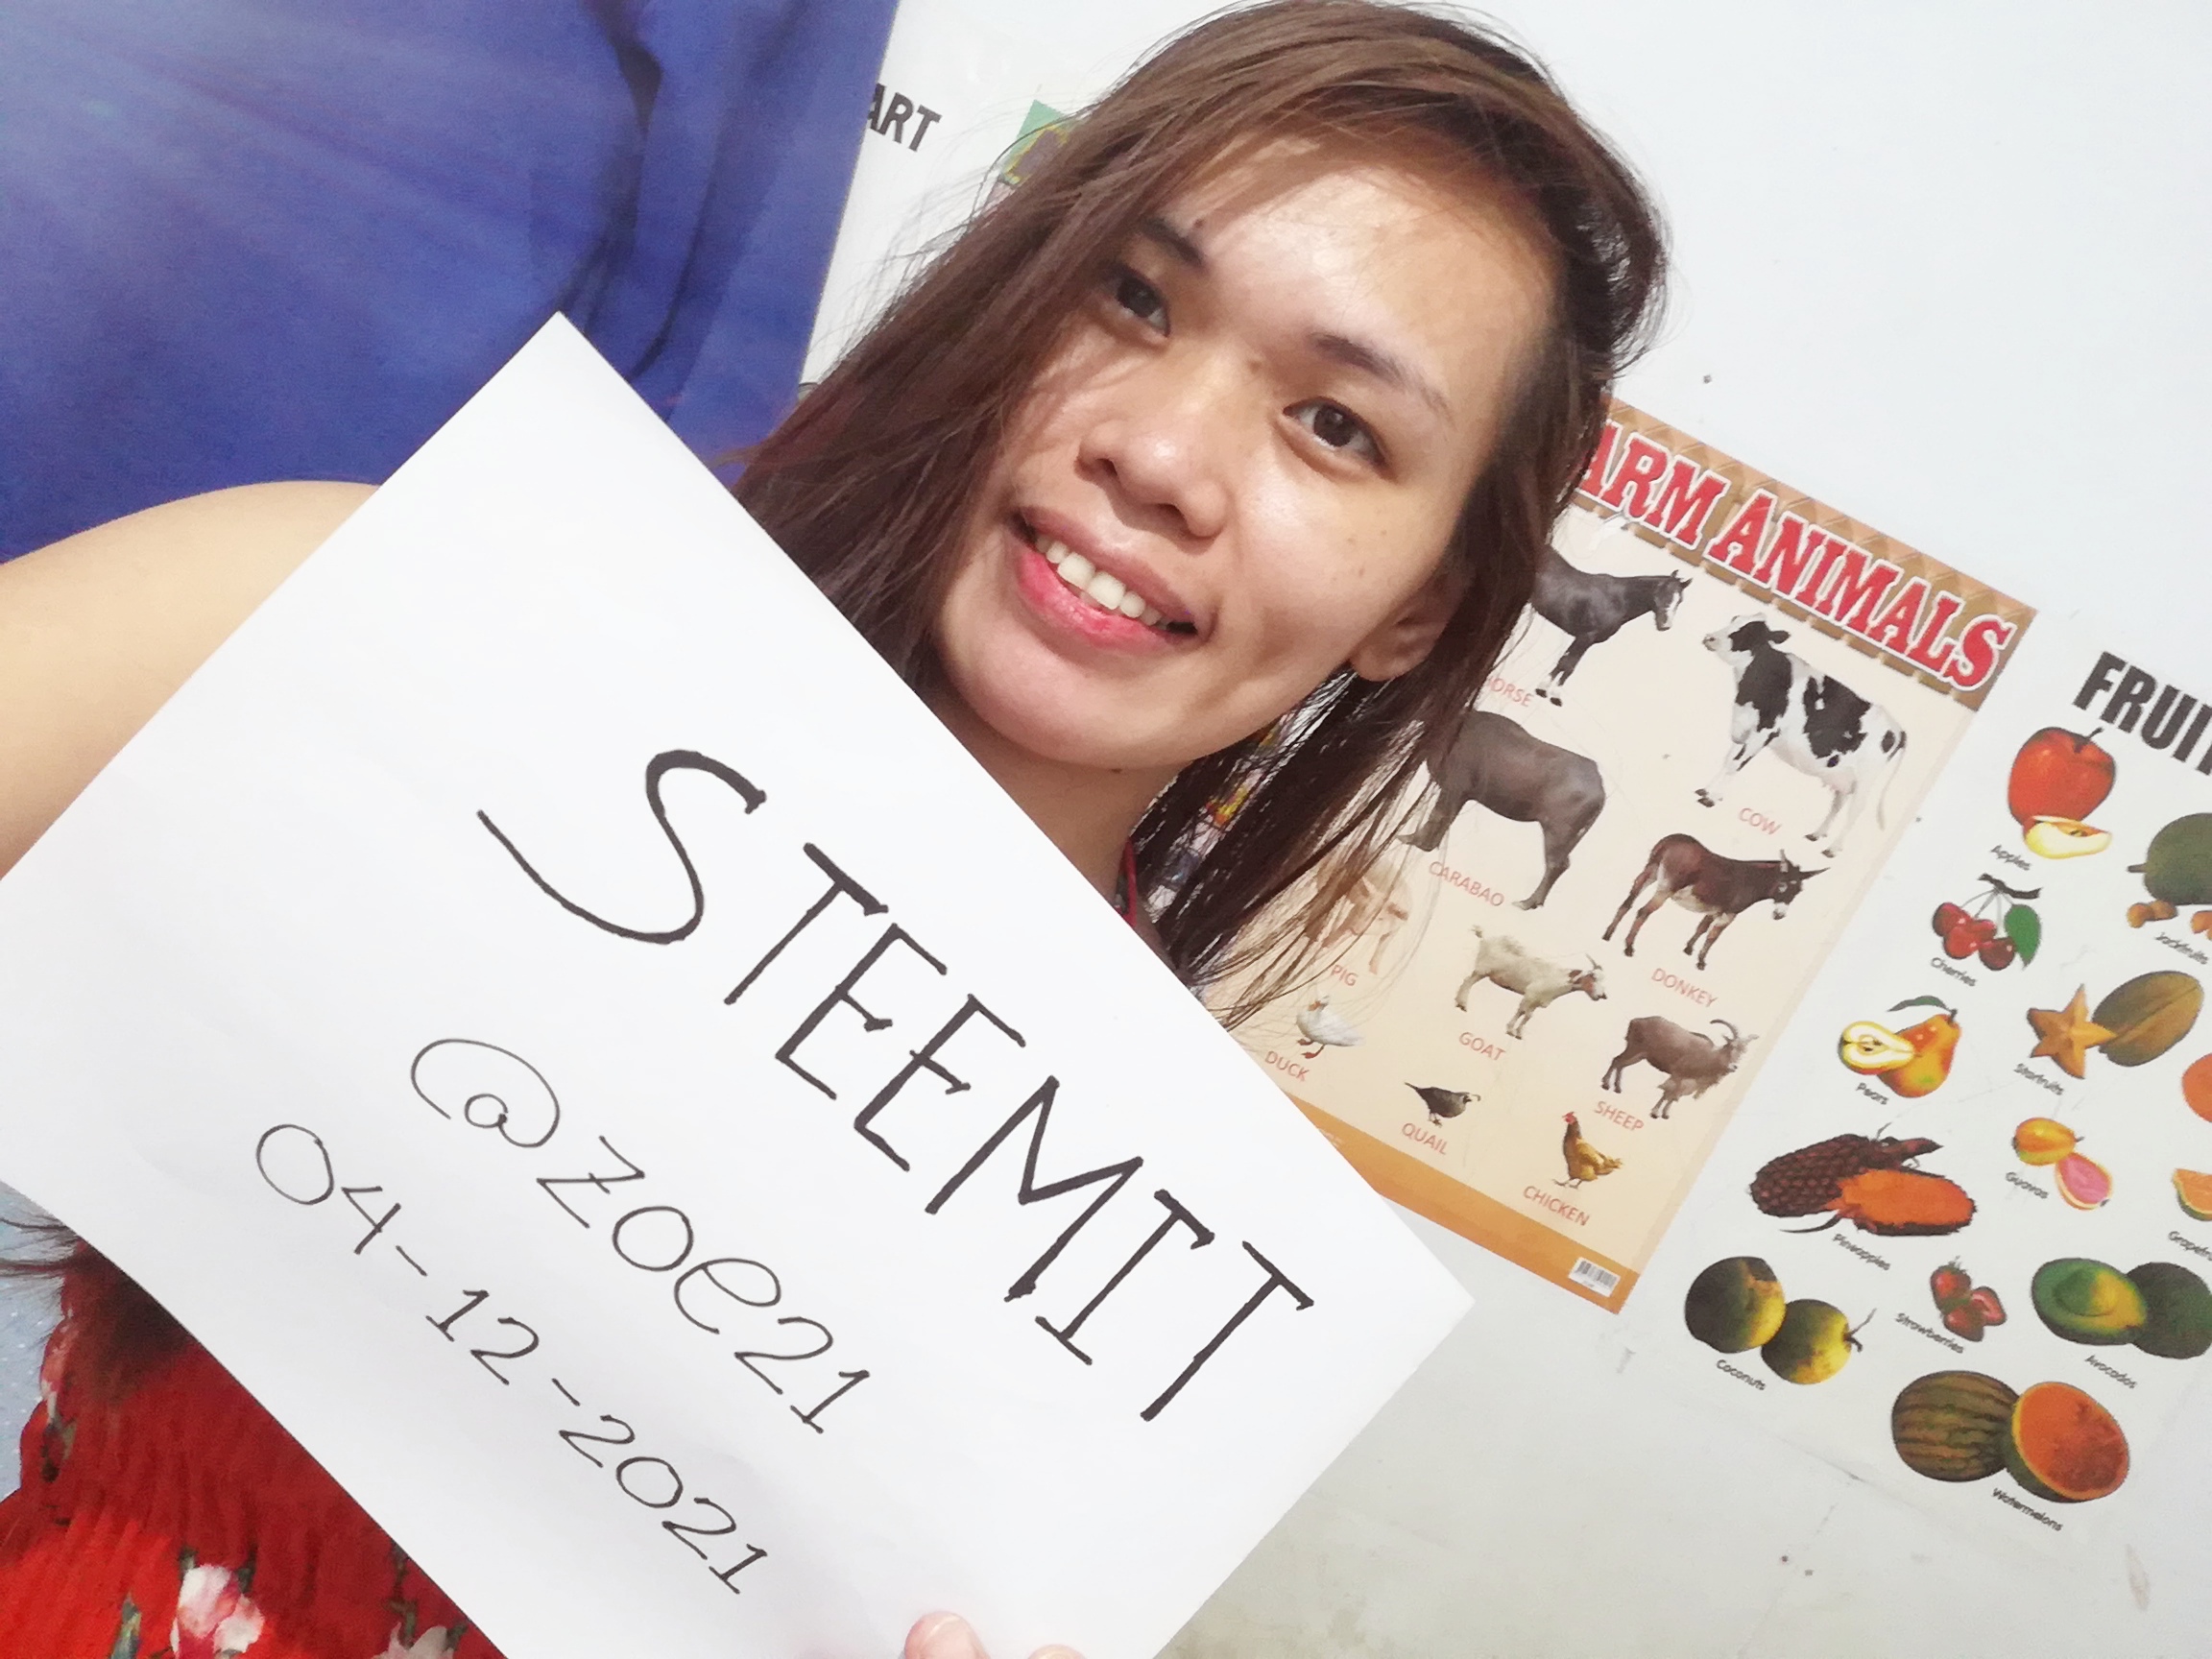 STEEMIT
@zoe21
04-12-2021
ART
ARM ANIMALS
HORSE
COW
CARABAO
DONKEY
PIG
GOAT
DUCK
SHEEP
QUAIL
CHICKEN
FRUIT
Apples
Jackfruits
Cherries
Starfruits
Pears
Guavas
Pineapples
Grapefru
Strawberries
Avocados
Coconuts
Watermelons